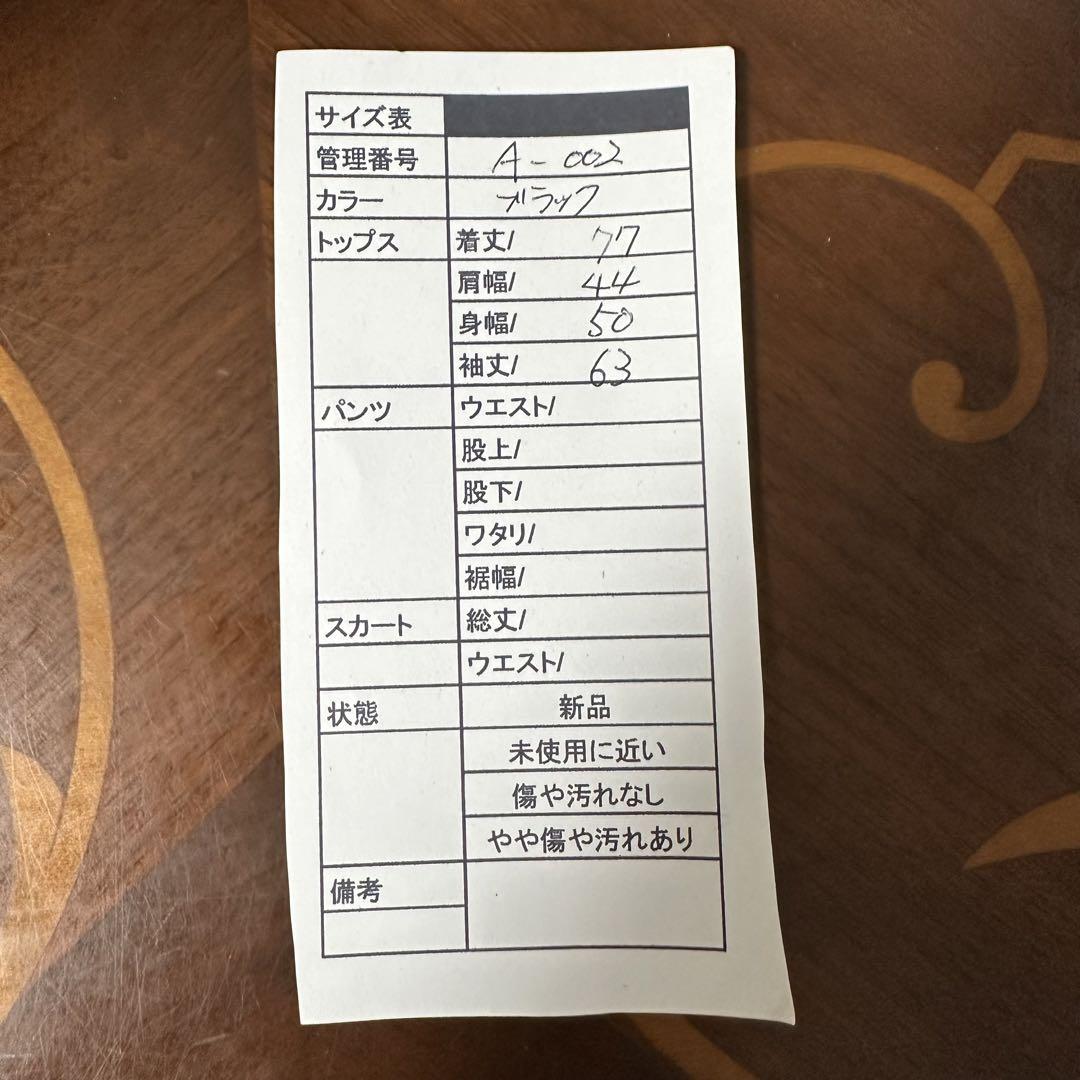 サイズ表
管理番号 A-002
カラー ブラック
トップス 着丈/ 77
肩幅/ 44
身幅/ 50
袖丈/ 63
パンツ ウエスト/
股上/
股下/
ワタリ/
裾幅/
スカート 総丈/
ウエスト/
状態 新品
未使用に近い
傷や汚れなし
やや傷や汚れあり
備考